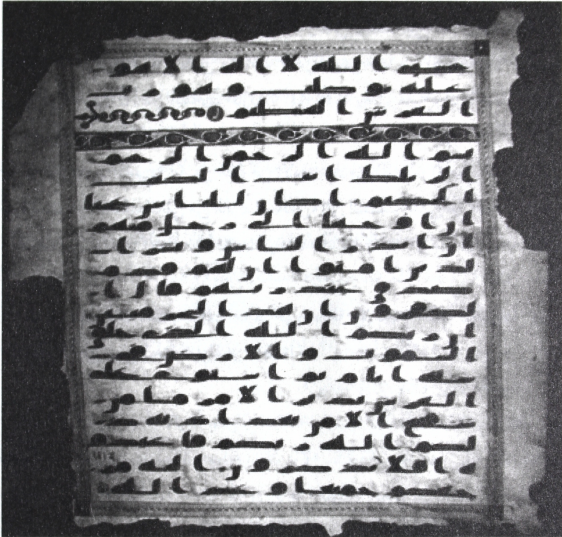 حسبى الله لا اله الا هو
عليه توكلت وهو رب
العرش العظيم
بسم الله الرحمن الرحيم
الر تلك ايت الكتب
الحكيم اكان للناس عجبا
ان اوحينا الى رجل منهم
ان انذر الناس وبشر ا
لذين امنوا ان لهم قدم
صدق عند ربهم قال ا
لكفرون ان هذا لسحر مبين
ان ربكم الله الذى خلق
السموت والارض فى
ستة ايام ثم استوى على
العرش يدبر الامر ما من
شفيع الا من بعد اذنه
ذلكم الله ربكم فاعبدو
ه افلا تذكرون اليه مر
جعكم جميعا وعد الله